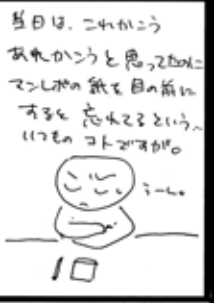 当日は、これかこう
あれかこうと思ってたのに
マンレポの紙を目の前に
すると忘れてるという、
いつものコトですが。
うーん。